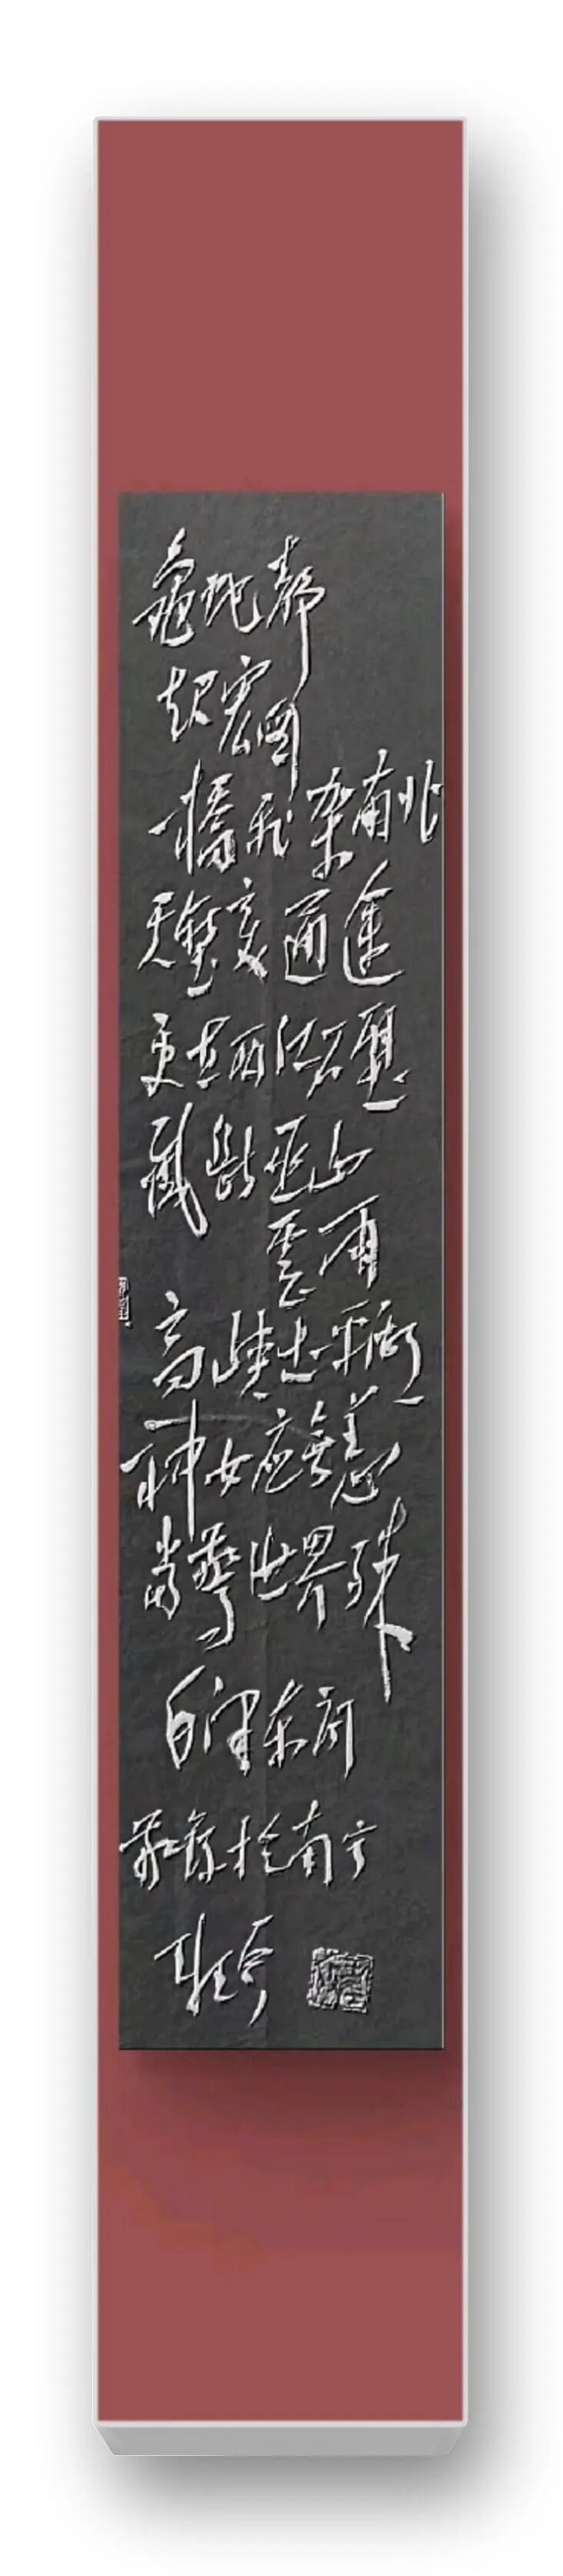 龜蛇静
起宏图
一橋飞架南北
天塹变通途
更立西江石壁
截断巫山
雲雨
高峡出平湖
神女应無恙
当驚世界殊
毛泽东词
於南宁